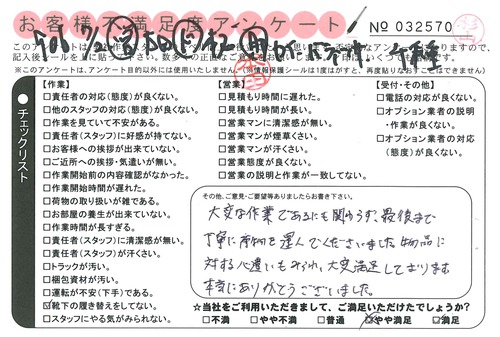 お客様不満足度アンケート
No 032570
※このアンケートは、アンケート目的以外には使用いたしません
チェックリスト
【作業】
□責任者の対応(態度)が良くない。
□他のスタッフの対応(態度)が良くない。
□作業を見ていて不安がある。
□責任者(スタッフ)に好感が持てない。
□お客様への挨拶が出来ていない。
□ご近所への挨拶・気遣いが無い。
□作業開始前の内容確認がなかった。
□作業開始時間が遅れた。
□荷物の取り扱いが雑である。
□お部屋の養生が出来ていない。
□作業時間が長すぎる。
□責任者(スタッフ)に清潔感が無い。
□責任者(スタッフ)が汗くさい。
□トラックが汚い。
□梱包資材が汚い。
□運転が不安(下手)である。
☑靴下の履き替えをしてない。
□スタッフにやる気がみられない。
【営業】
□見積もり時間に遅れた。
□見積もり時間が長い。
□営業マンに清潔感が無い。
□営業マンが煙草くさい。
□営業マンが汗くさい。
□営業態度が良くない。
□営業の説明と作業が一致してない。
【受付・その他】
□電話の対応が良くない。
□オプション業者の説明
・作業が良くない。
□オプション業者の対応
(態度)が良くない。
その他、ご意見・ご要望等ありましたらお書き下さい。
大変な作業であるにも関わらず、最後まで
丁寧に荷物を運んでくださいました。物品に
対する心遣いもみられ、大変満足しております
本当にありがとうございました。
☆当社をご利用いただきまして、ご満足いただけたでしょうか?
□不満 □やや不満 □普通 ☑やや満足 □満足